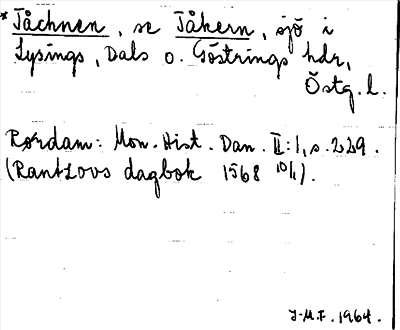 *Tåchnen, se Tåkern, sjö i
Lysings, Dals o. Göstrings hdr,
Östg.l.
Rørdam: Mon. Hist. Dan. II:1, s. 229.
(Rantzovs dagbok 1568 10/1).
J-M.F. 1964.